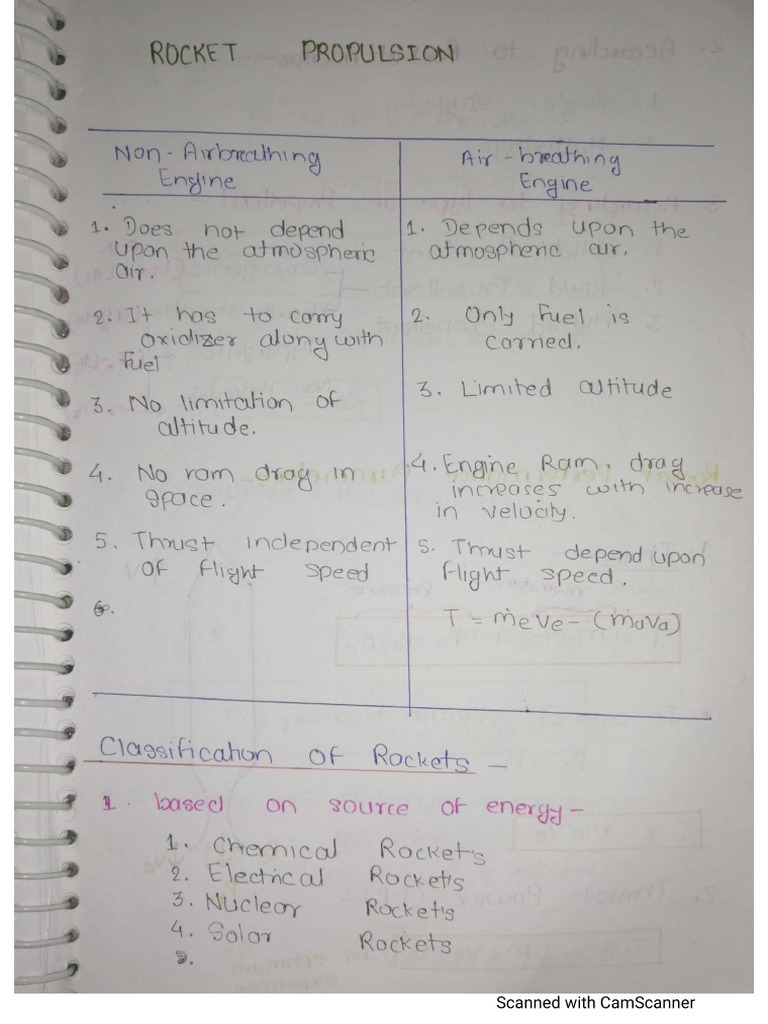 ROCKET PROPULSION
Non-Airbreathing
Engine
1. Does not depend
upon the atmospheric
air.
2. It has to carry
oxidizer along with
fuel
3. No limitation of
altitude.
4. No ram drag in
space.
5. Thrust independent
of flight speed
6.
Air-breathing
Engine
1. Depends upon the
atmospheric air.
2. Only Fuel is
carried.
3. Limited altitude
4. Engine Ram, drag
increases with increase
in velocity.
5. Thrust depend upon
flight speed.
T = ṁeVe - (ṁaVa)
Classification of Rockets -
1. based on source of energy -
1. Chemical Rocket's
2. Electrical Rocket's
3. Nuclear Rocket's
4. Solar Rockets
5.
Scanned with CamScanner